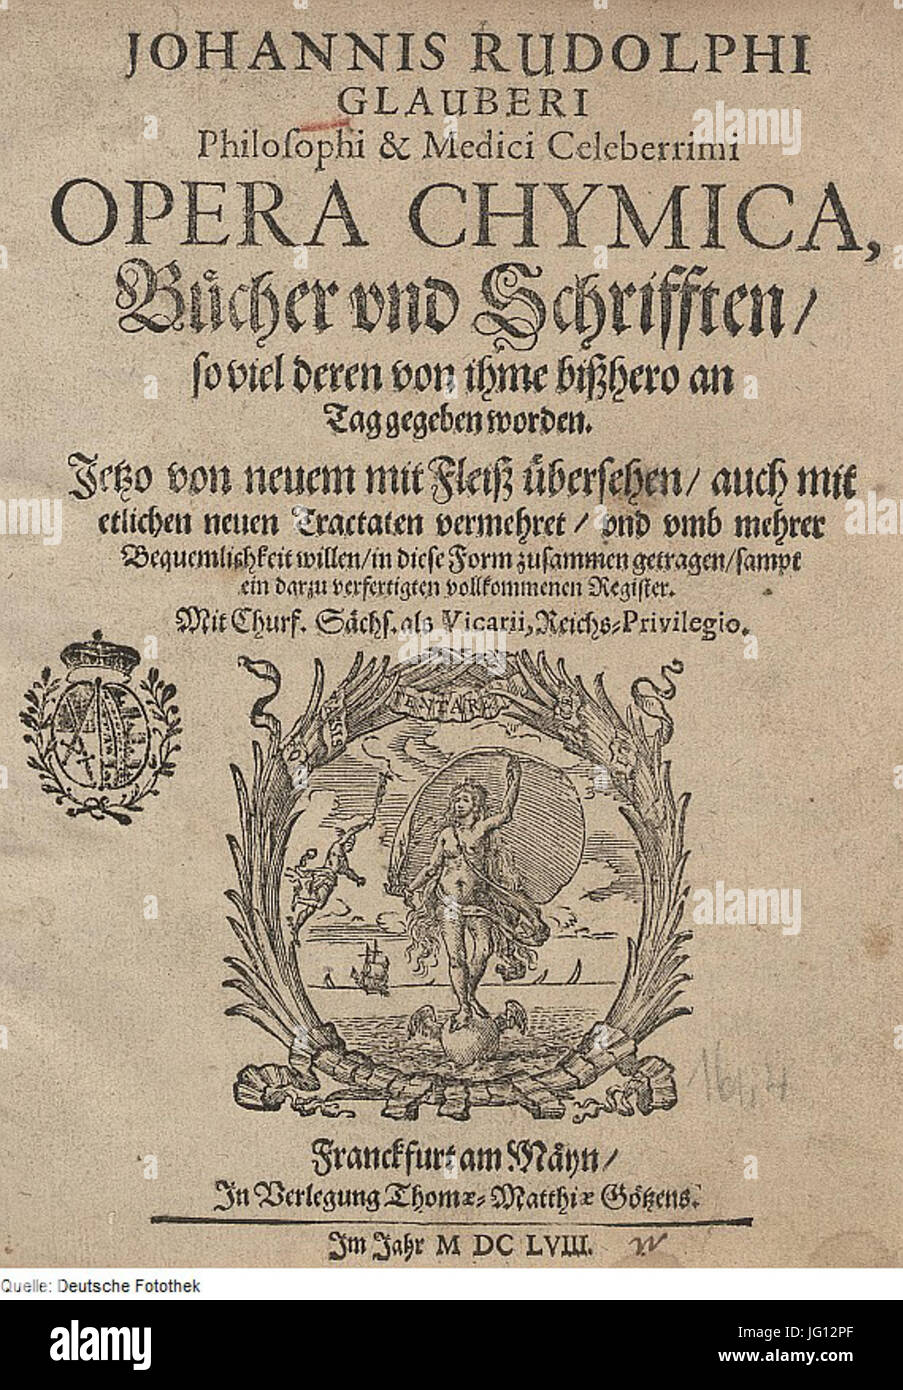 JOHANNIS RUDOLPHI
GLAUBERI
Philoſophi & Medici Celeberrimi
OPERA CHYMICA,
Bücher vnd Schrifften/
ſo viel deren von ihme bißhero an
Tag gegeben worden.
Jetzo von neuem mit Fleiß überſehen/ auch mit
etlichen neuen Tractaten vermehret/ vnd vmb mehrer
Bequemlichkeit willen/ in dieſe Form zuſammen getragen/ ſampt
ein darzu verfertigten vollkommenen Regiſter.
Mit Churf. Sächſ. als Vicarii, Reichs-Privilegio.
Franckfurt am Mäyn/
In Verlegung Thomæ-Matthiæ Götzens.
Im Jahr M DC LVIII.
Quelle: Deutsche Fotothek
alamy
alamy
Image ID: JG12PF
www.alamy.com